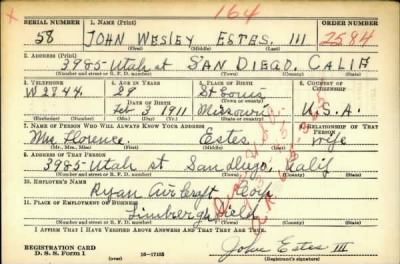 x 164
SERIAL NUMBER 1. NAME (Print) ORDER NUMBER
58 JOHN WESLEY ESTES. III 2584
(First) (Middle) (Last)
2. ADDRESS (Print)
3985-Utah st SAN DIEGO. CALIF
(Number and street or R. F. D. number) (Town) (County) (State)
3. TELEPHONE 4. AGE IN YEARS 5. PLACE OF BIRTH 6. COUNTRY OF CITIZENSHIP
W 2844. 29 St Louis
DATE OF BIRTH (Town or county)
Feb 3 1911 Missouri U.S.A.
(Exchange) (Number) (Mo.) (Day) (Yr.) (State or country)
7. NAME OF PERSON WHO WILL ALWAYS KNOW YOUR ADDRESS 8. RELATIONSHIP OF THAT PERSON
Mrs Florence. Estes. wife
(Mr., Mrs., Miss) (First) (Middle) (Last)
9. ADDRESS OF THAT PERSON
3985-Utah st San Diego, Kalif
(Number and street or R. F. D. number) (Town) (County) (State)
10. EMPLOYER'S NAME
Ryan Aircraft Corp
11. PLACE OF EMPLOYMENT OR BUSINESS
Limbergh Field
(Number and street or R. F. D. number) (Town) (County) (State)
I AFFIRM THAT I HAVE VERIFIED ABOVE ANSWERS AND THAT THEY ARE TRUE.
REGISTRATION CARD
D. S. S. Form 1 16-17105 John Estes III
(Registrant's signature)